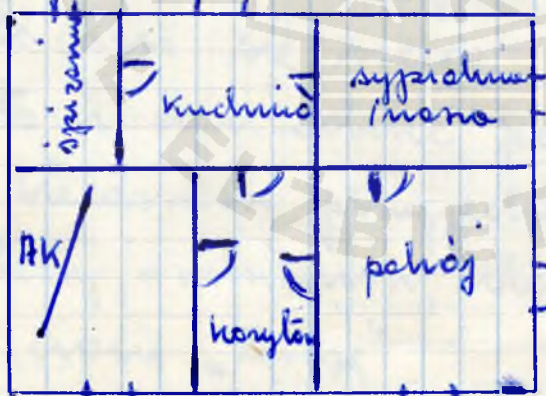 spiżarnia
kuchnia
sypialnia
nasza
AK
korytarz
pokój
ELŻBIET